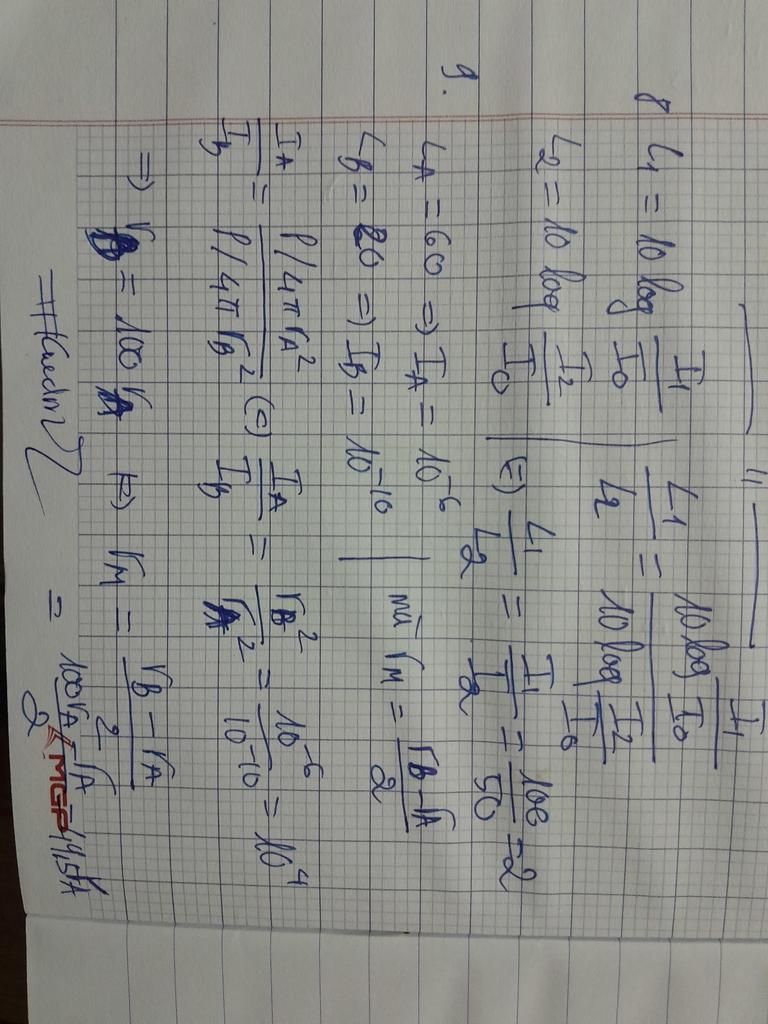 8 L₁ = 10 log I₁/I₀ | L₁/L₂ = (10 log I₁/I₀)/(10 log I₂/I₀)
L₂ = 10 log I₂/I₀ | (=) L₁/L₂ = I₁/I₂ = 100/50 = 2
9. L_A = 60 => I_A = 10⁻⁶
L_B = 20 => I_B = 10⁻¹⁰ | mà r_M = (r_B - r_A)/2
I_A/I_B = (P/4πr_A²)/(P/4πr_B²) (=) I_A/I_B = r_B²/r_A² = 10⁻⁶/10⁻¹⁰ = 10⁴
=> r_B = 100 r_A => r_M = (r_B - r_A)/2
= (100r_A - r_A)/2
MGP